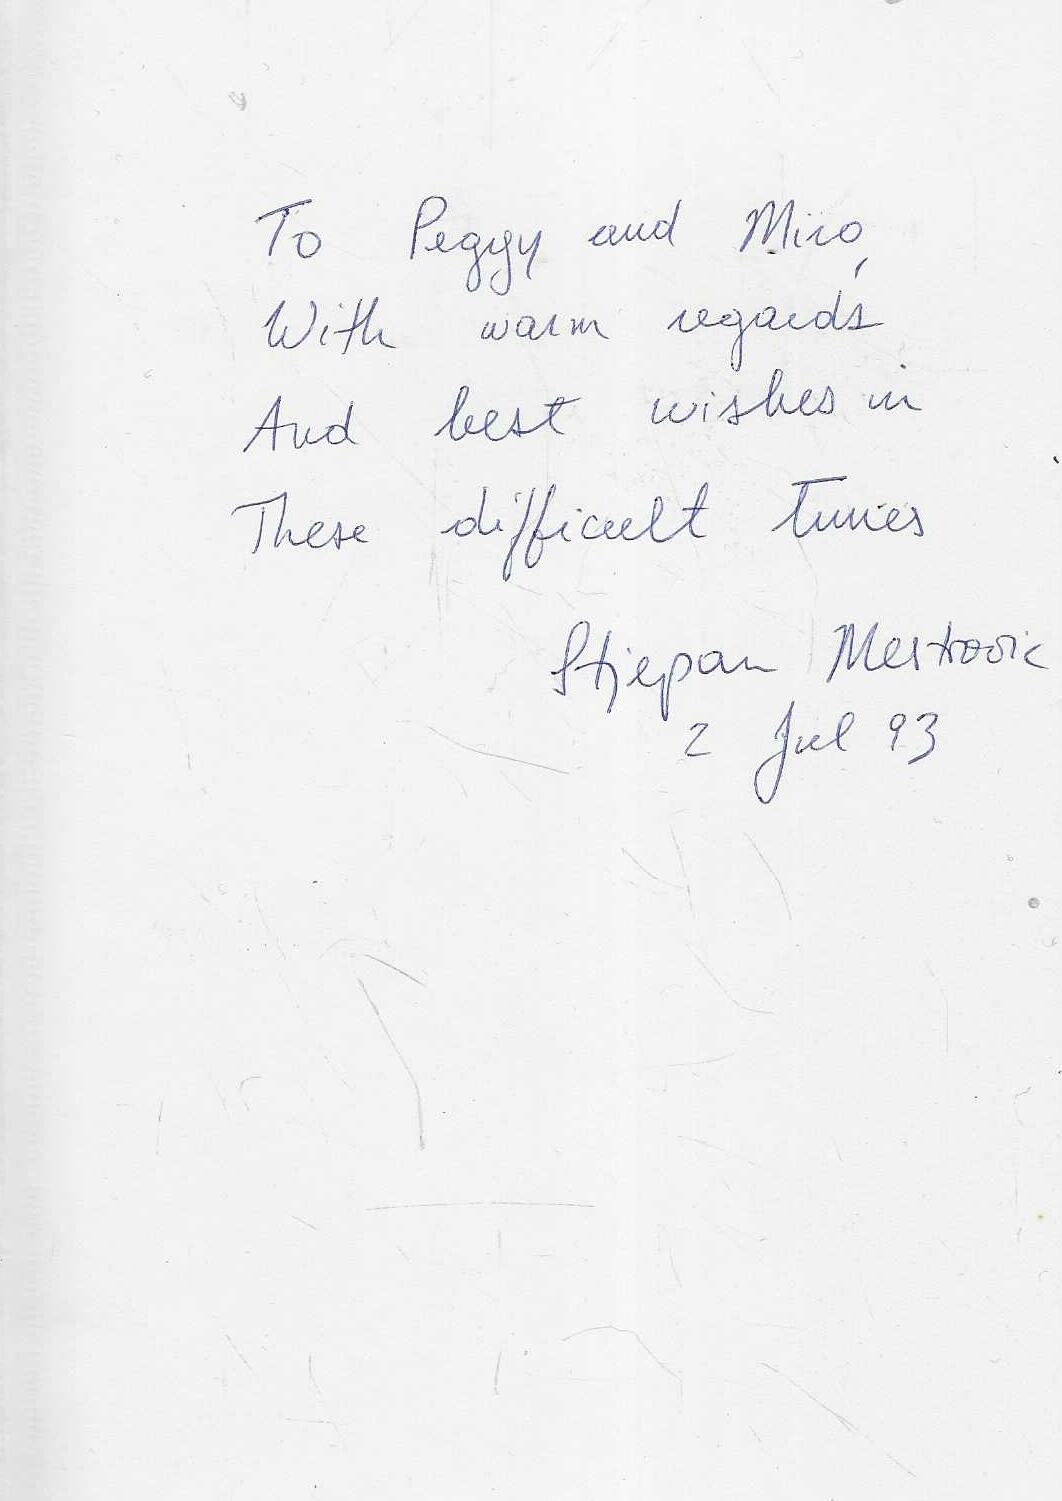 To Peggy and Miro,
With warm regards
And best wishes in
These difficult times
Stjepan Mestrovic
2 Jul 93